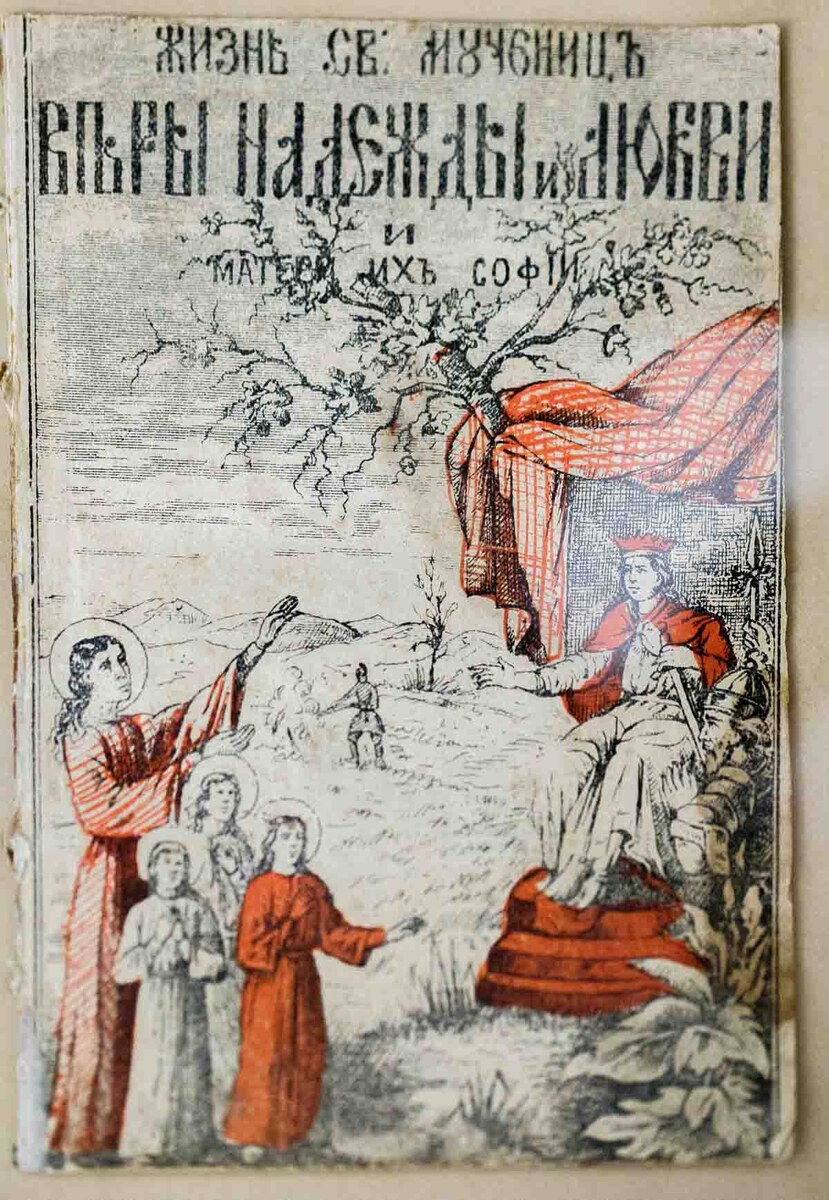 ЖИЗНЬ СВ: МУЧЕНИЦЪ
ВѢРЫ НАДЕЖДЫ и ЛЮБВИ
И
МАТЕРИ ИХЪ СОФІИ